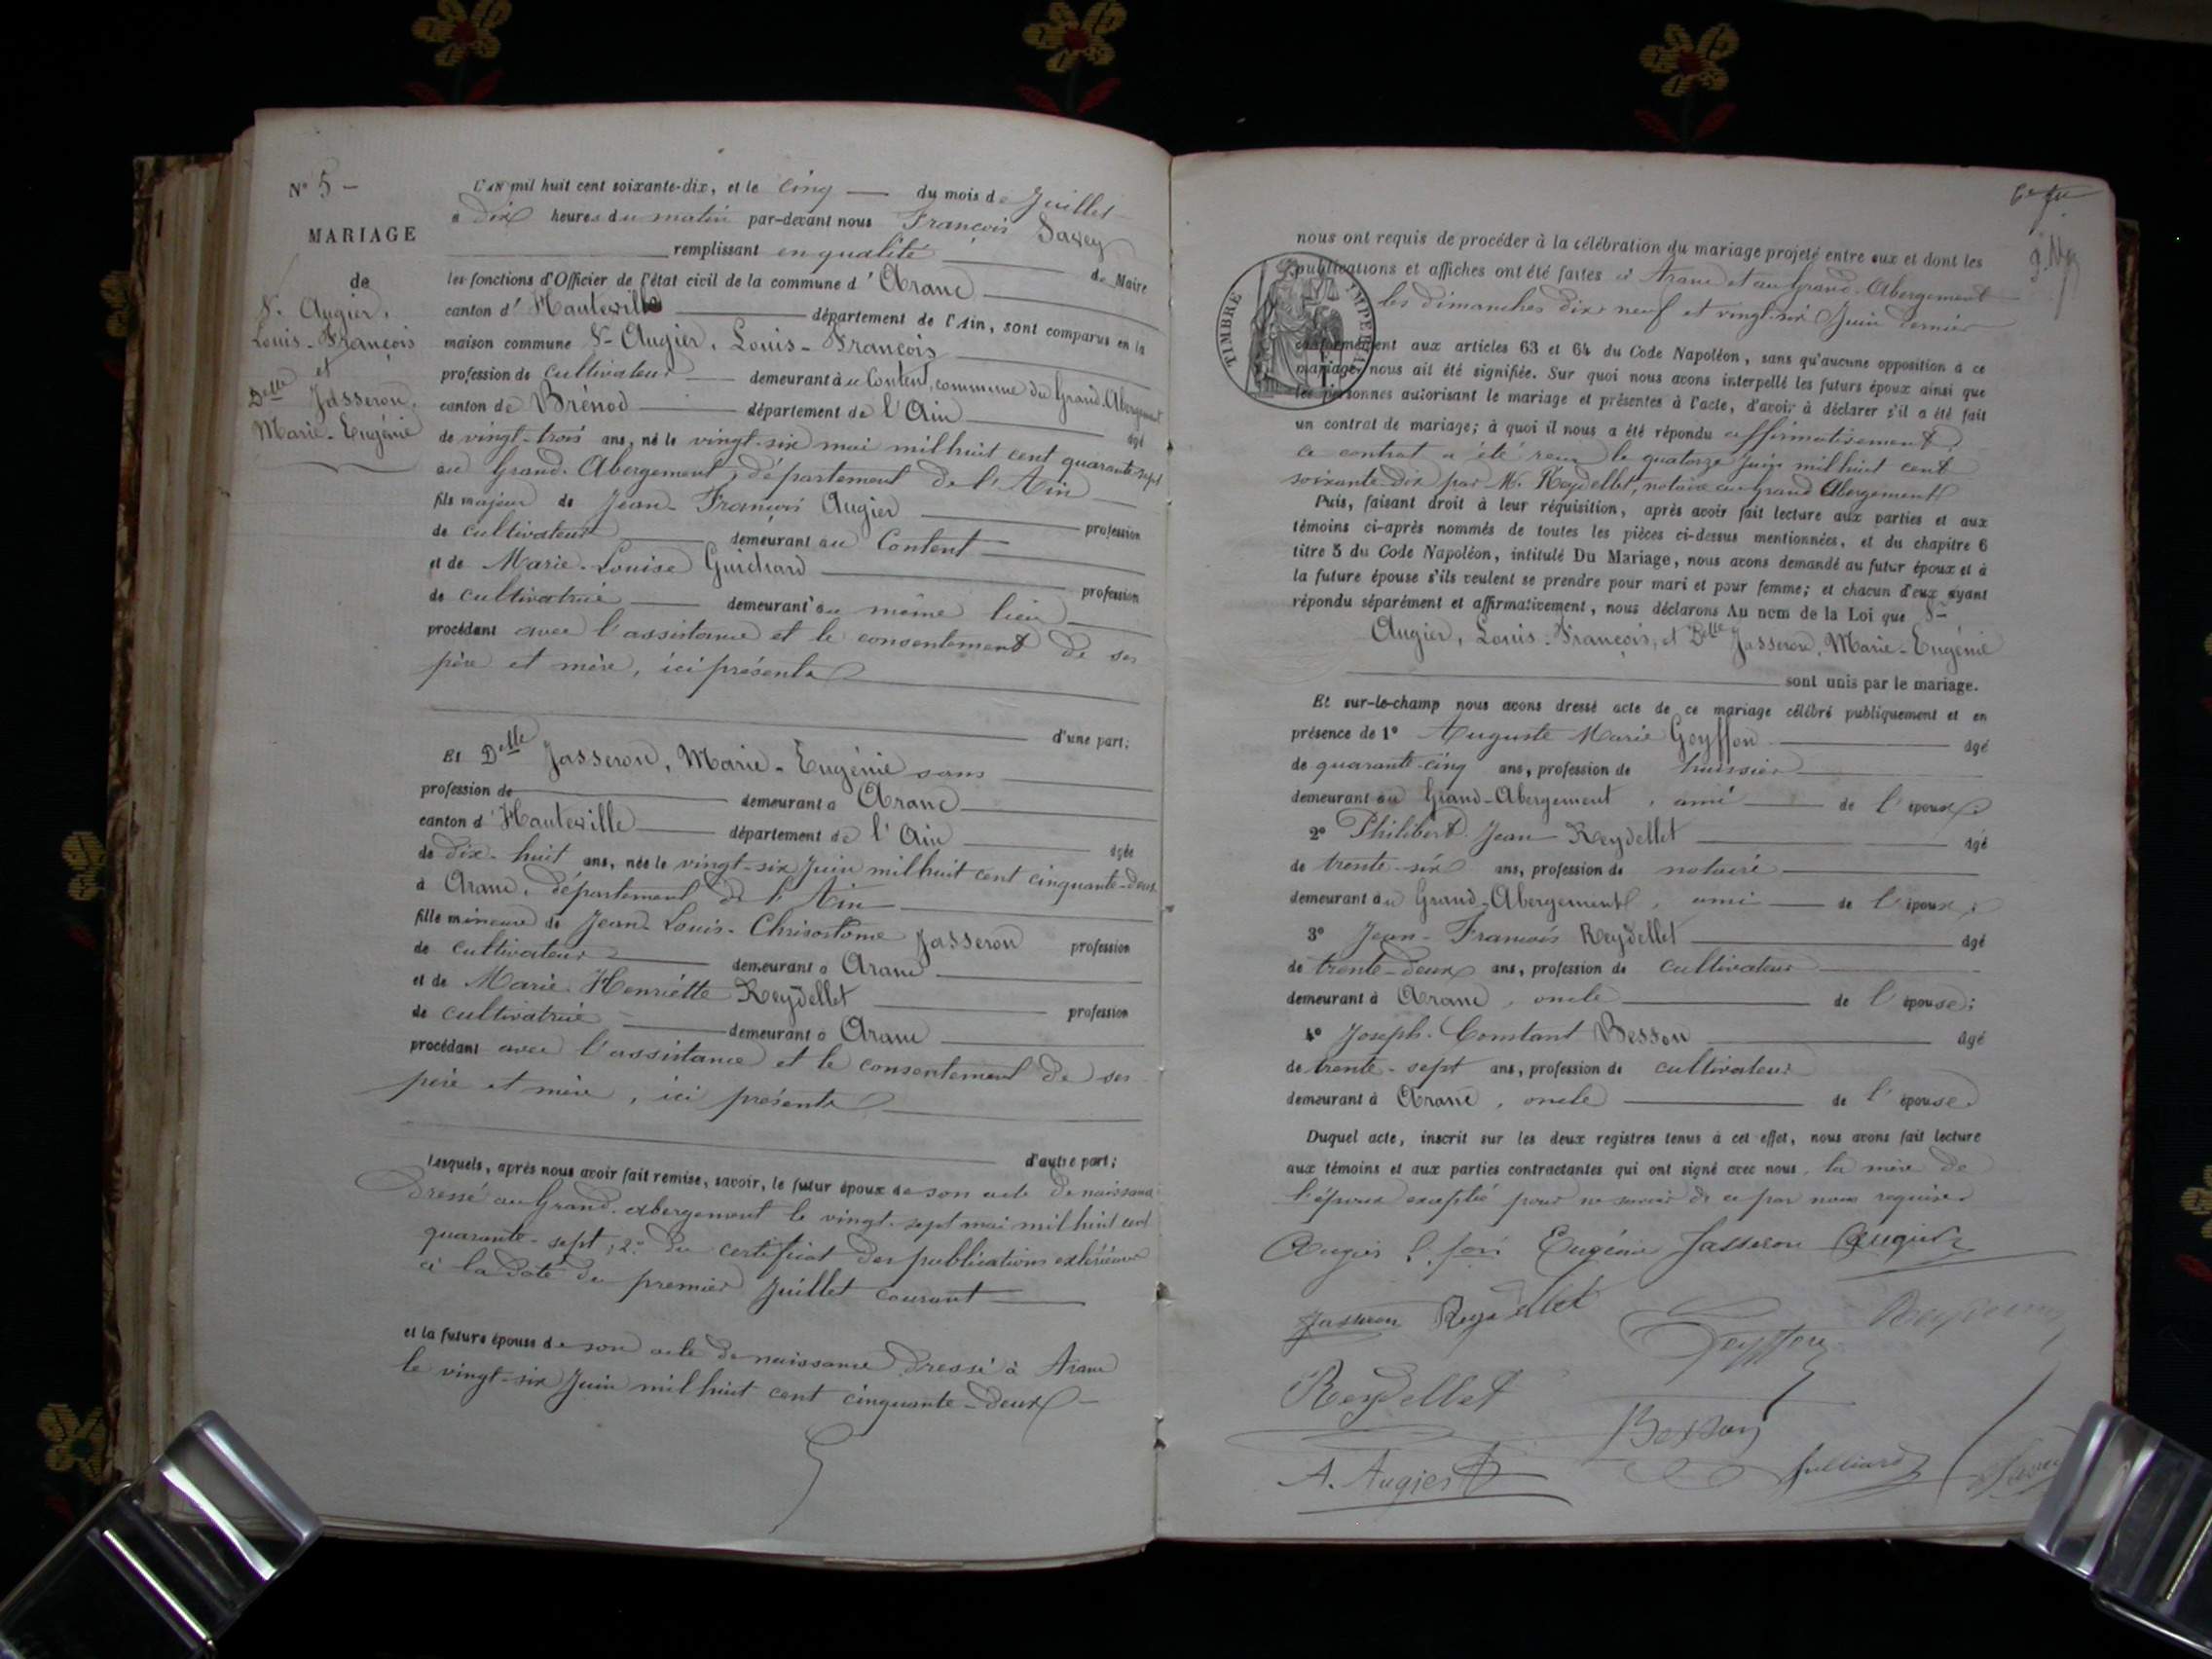 N° 5 -
MARIAGE
de
Sr Augier,
Louis-François
et
Delle Jasseron,
Marie-Eugénie
L'an mil huit cent soixante-dix, et le cinq du mois de Juillet
à dix heures du matin par-devant nous François Savey
remplissant en qualité de Maire
les fonctions d'Officier de l'état civil de la commune d'Aranc
canton d'Hauteville département de l'Ain, sont comparus en la
maison commune Sr Augier, Louis-François
profession de cultivateur demeurant à au Content, commune du Grand-Abergement
canton de Brénod département de l'Ain âgé
de vingt-trois ans, né le vingt-six mai mil huit cent quarante-sept
au Grand-Abergement, département de l'Ain
fils majeur de Jean-François Augier profession
de cultivateur demeurant au Content
et de Marie-Louise Guichard profession
de cultivatrice demeurant au même lieu
procédant avec l'assistance et le consentement de ses
père et mère, ici présents
d'une part;
Et Delle Jasseron, Marie-Eugénie sans
profession de demeurant à Aranc
canton d'Hauteville département de l'Ain âgée
de dix-huit ans, née le vingt-six Juin mil huit cent cinquante-deux
à Aranc, département de l'Ain
fille mineure de Jean-Louis-Chrisostome Jasseron profession
de cultivateur demeurant à Aranc
et de Marie Henriette Reydellet profession
de cultivatrice demeurant à Aranc
procédant avec l'assistance et le consentement de ses
père et mère, ici présents
d'autre part;
Lesquels, après nous avoir fait remise, savoir, le futur époux de son acte de naissance
dressé au Grand-abergement le vingt-sept mai mil huit cent
quarante-sept; 2° du certificat des publications extérieures
à la date du premier Juillet courant
et la future épouse de son acte de naissance dressé à Aranc
le vingt-six Juin mil huit cent cinquante-deux
nous ont requis de procéder à la célébration du mariage projeté entre eux et dont les
publications et affiches ont été faites à Aranc et au Grand-Abergement
les dimanches dix neuf et vingt-six Juin dernier
TIMBRE IMPERIAL
conformément aux articles 63 et 64 du Code Napoléon, sans qu'aucune opposition à ce
mariage nous ait été signifiée. Sur quoi nous avons interpellé les futurs époux ainsi que
les personnes autorisant le mariage et présentes à l'acte, d'avoir à déclarer s'il a été fait
un contrat de mariage; à quoi il nous a été répondu affirmativement,
ce contrat a été reçu le quatorze Juin mil huit cent
soixante-dix par Me Reydellet, notaire au Grand Abergement
Puis, faisant droit à leur réquisition, après avoir fait lecture aux parties et aux
témoins ci-après nommés de toutes les pièces ci-dessus mentionnées, et du chapitre 6
titre 5 du Code Napoléon, intitulé Du Mariage, nous avons demandé au futur époux et à
la future épouse s'ils veulent se prendre pour mari et pour femme; et chacun d'eux ayant
répondu séparément et affirmativement, nous déclarons Au nom de la Loi que Sr
Augier, Louis-François, et Delle Jasseron, Marie-Eugénie
sont unis par le mariage.
Et sur-le-champ nous avons dressé acte de ce mariage célébré publiquement et en
présence de 1° Auguste Marie Goyffon âgé
de quarante-cinq ans, profession de huissier
demeurant au Grand-Abergement, ami de l'époux;
2° Philibert Jean Reydellet âgé
de trente-six ans, profession de notaire
demeurant au Grand-Abergement, ami de l'époux;
3° Jean-François Reydellet âgé
de trente-deux ans, profession de cultivateur
demeurant à Aranc, oncle de l'épouse;
4° Joseph-Constant Besson âgé
de trente-sept ans, profession de cultivateur
demeurant à Aranc, oncle de l'épouse.
Duquel acte, inscrit sur les deux registres tenus à cet effet, nous avons fait lecture
aux témoins et aux parties contractantes qui ont signé avec nous, la mère de
l'époux exceptée pour ne savoir de ce par nous requise
Augier Eugénie Jasseron Augier
Jasseron Reydellet Goyffon
Reydellet Besson
A. Augier Julliard Savey